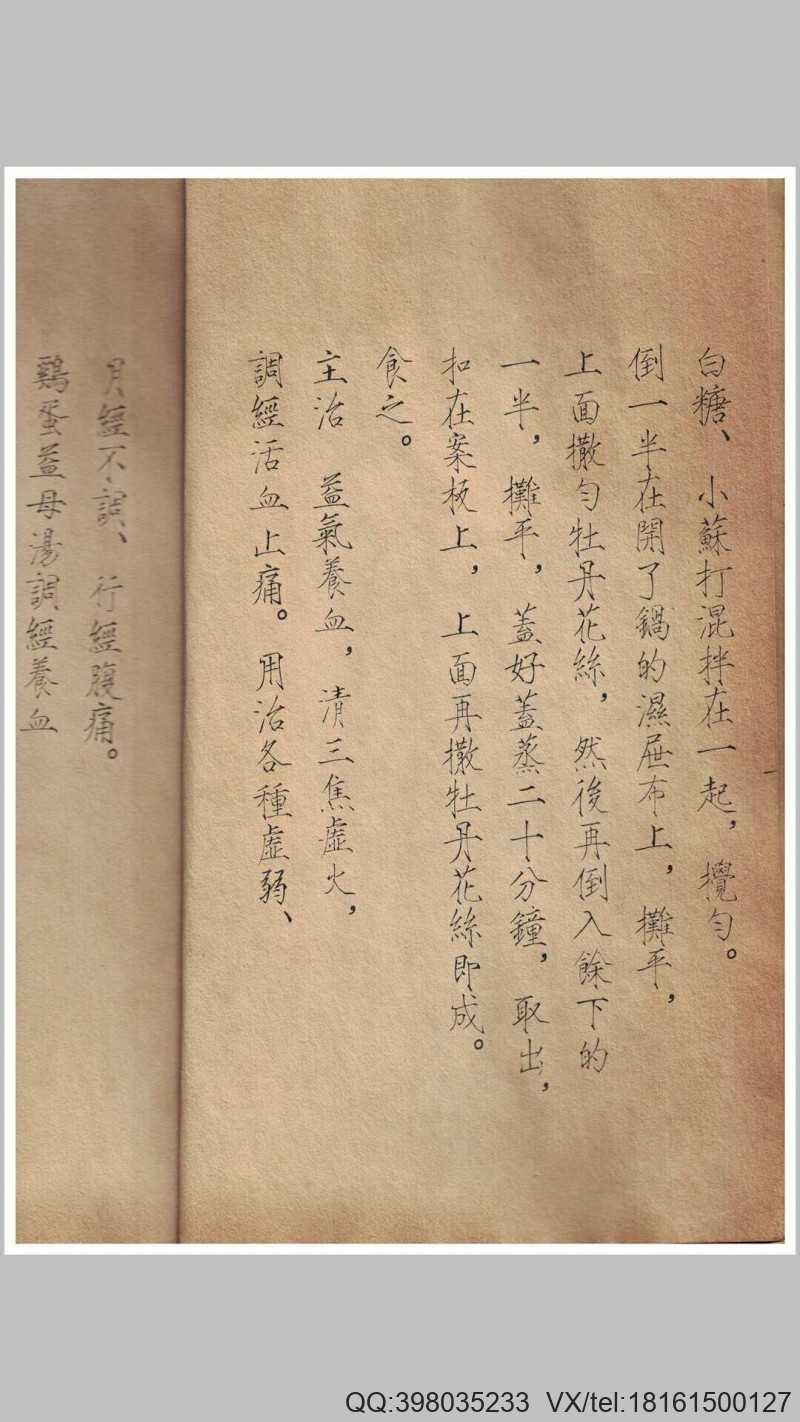 白糖、小蘇打混拌在一起，攪勻。
倒一半在開了鍋的濕屉布上，攤平，
上面撒勻牡丹花絲，然後再倒入餘下的
一半，攤平，蓋好蓋蒸二十分鐘，取出，
扣在案板上，上面再撒牡丹花絲即成。
食之。
主治 益氣養血，清三焦虛火，
調經活血止痛。用治各種虛弱、
月經不調、行經腹痛。
鷄蛋益母湯調經養血
QQ:398035233 VX/tel:18161500127